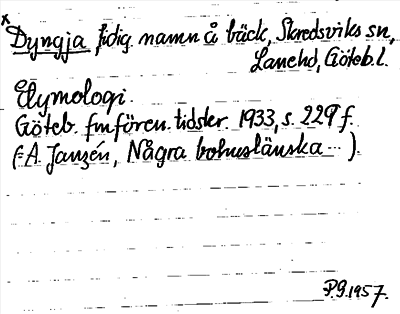 *Dyngja, tidig. namn å bäck, Skredsviks sn,
Lanehd, Göteb. l.
Etymologi.
Göteb. fmfören. tidskr. 1933, s. 229 f.
(=A. Janzén, Några bohuslänska ... ).
P.G. 1957.